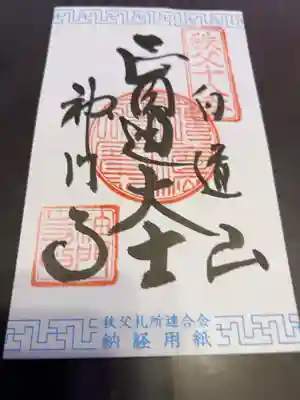 秩父十
白道山
正圓通大士
神門寺
秩父札所連合会
納経用紙